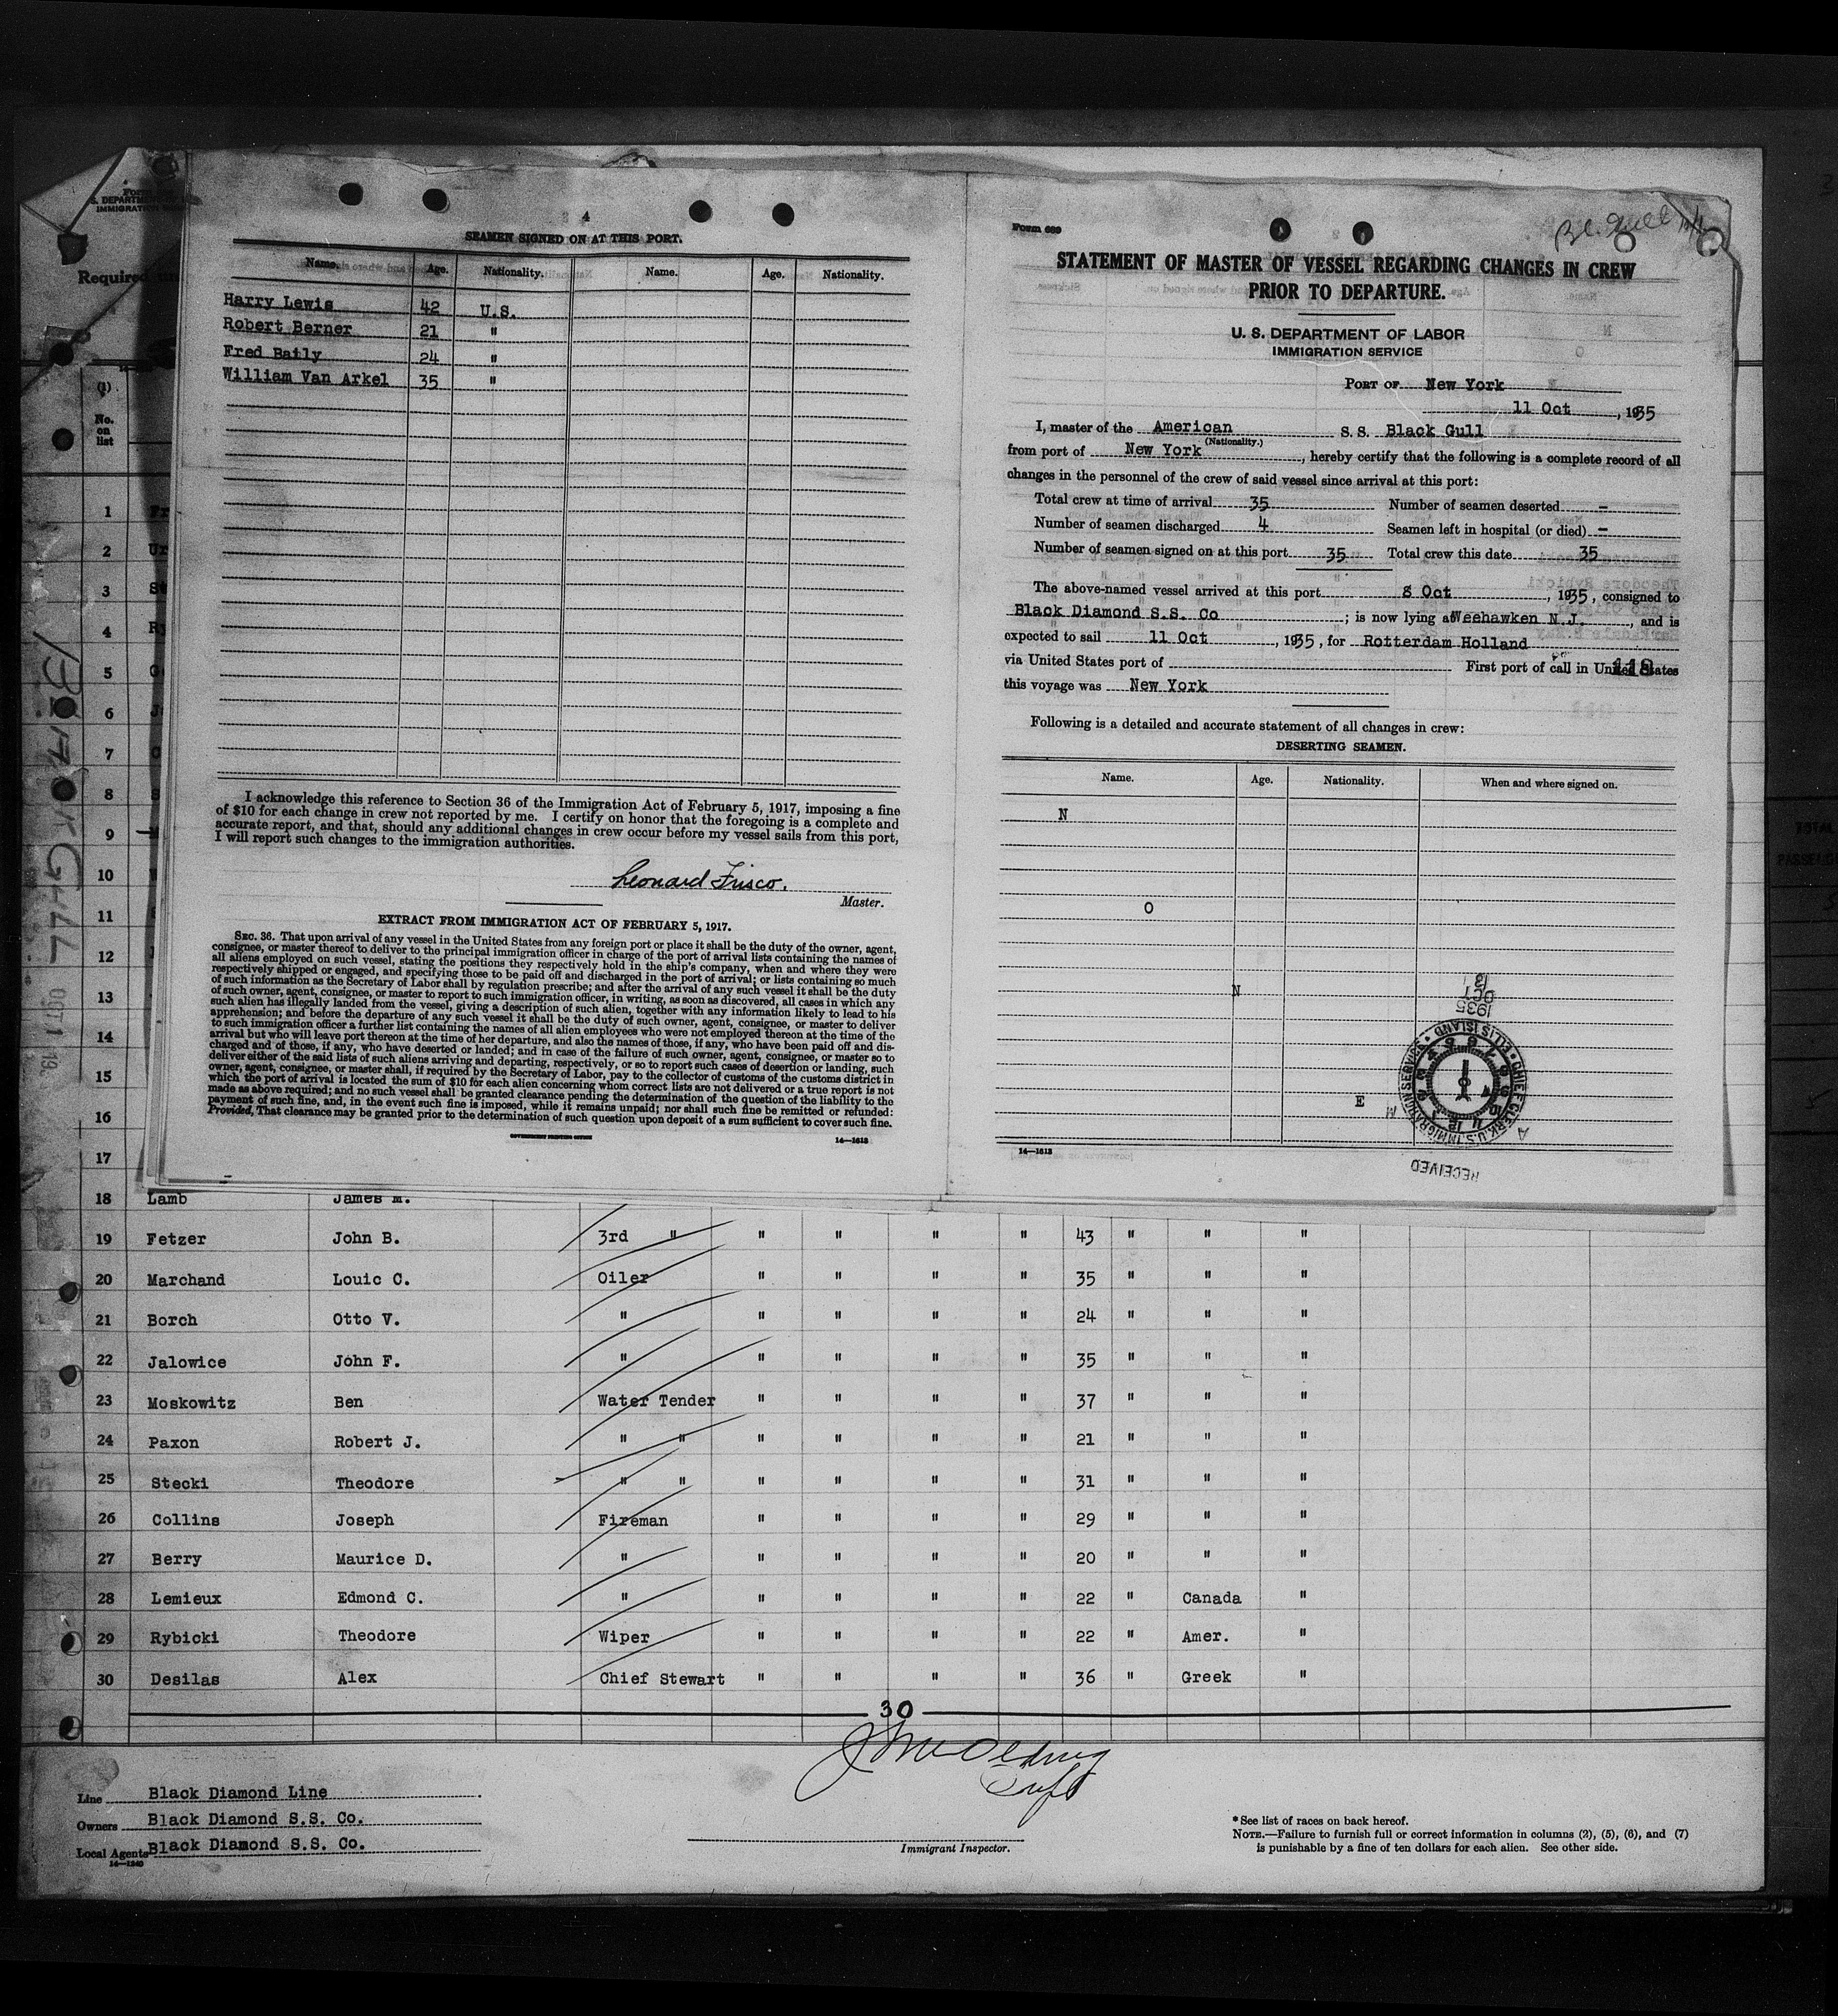 4
SEAMEN SIGNED ON AT THIS PORT.
Name. Age. Nationality. Name. Age. Nationality.
Harry Lewis 42 U.S.
Robert Berner 21 "
Fred Baily 24 "
William Van Arkel 35 "
I acknowledge this reference to Section 36 of the Immigration Act of February 5, 1917, imposing a fine
of $10 for each change in crew not reported by me. I certify on honor that the foregoing is a complete and
accurate report, and that, should any additional changes in crew occur before my vessel sails from this port,
I will report such changes to the immigration authorities.
Leonard Frisco.
Master.
EXTRACT FROM IMMIGRATION ACT OF FEBRUARY 5, 1917.
SEC. 36. That upon arrival of any vessel in the United States from any foreign port or place it shall be the duty of the owner, agent,
consignee, or master thereof to deliver to the principal immigration officer in charge of the port of arrival lists containing the names of
all aliens employed on such vessel, stating the positions they respectively hold in the ship's company, when and where they were
respectively shipped or engaged, and specifying those to be paid off and discharged in the port of arrival; or lists containing so much
of such information as the Secretary of Labor shall by regulation prescribe; and after the arrival of any such vessel it shall be the duty
of such owner, agent, consignee, or master to report to such immigration officer, in writing, as soon as discovered, all cases in which any
such alien has illegally landed from the vessel, giving a description of such alien, together with any information likely to lead to his
apprehension; and before the departure of any such vessel it shall be the duty of such owner, agent, consignee, or master to deliver
to such immigration officer a further list containing the names of all alien employees who were not employed thereon at the time of the
arrival but who will leave port thereon at the time of her departure, and also the names of those, if any, who have been paid off and dis-
charged and of those, if any, who have deserted or landed; and in case of the failure of such owner, agent, consignee, or master so to
deliver either of the said lists of such aliens arriving and departing, respectively, or so to report such cases of desertion or landing, such
owner, agent, consignee, or master shall, if required by the Secretary of Labor, pay to the collector of customs of the customs district in
which the port of arrival is located the sum of $10 for each alien concerning whom correct lists are not delivered or a true report is not
made as above required; and no such vessel shall be granted clearance pending the determination of the question of the liability to the
payment of such fine, and, in the event such fine is imposed, while it remains unpaid; nor shall such fine be remitted or refunded:
Provided, That clearance may be granted prior to the determination of such question upon deposit of a sum sufficient to cover such fine.
GOVERNMENT PRINTING OFFICE 14—1613
Form 689
Bl. Gull
STATEMENT OF MASTER OF VESSEL REGARDING CHANGES IN CREW
PRIOR TO DEPARTURE.
U. S. DEPARTMENT OF LABOR
IMMIGRATION SERVICE
PORT OF New York
11 Oct, 1935
I, master of the American S. S. Black Gull
(Nationality.)
from port of New York, hereby certify that the following is a complete record of all
changes in the personnel of the crew of said vessel since arrival at this port:
Total crew at time of arrival 35 Number of seamen deserted —
Number of seamen discharged 4 Seamen left in hospital (or died) —
Number of seamen signed on at this port 35 Total crew this date 35
The above-named vessel arrived at this port 8 Oct, 1935, consigned to
Black Diamond S.S. Co; is now lying at Weehawken N.J., and is
expected to sail 11 Oct, 1935, for Rotterdam Holland
via United States port of First port of call in United States
118
this voyage was New York
Following is a detailed and accurate statement of all changes in crew:
DESERTING SEAMEN.
Name. Age. Nationality. When and where signed on.
N
O
N
E
14—1613
RECEIVED
CHIEF CLERK, U.S. IMMIGRATION SERVICE
ELLIS ISLAND
1935
OCT
13
A M
S. DEPARTM
IMMIGRATION
Required
(1)
No.
on
list
1
2
3
4
5
6
7
8
9
10
11
12
13
14
15
16
17
BLACK GULL OCT 1
18 Lamb James M.
19 Fetzer John B. 3rd " " " " " 43 " " "
20 Marchand Louic C. Oiler " " " " 35 " " "
21 Borch Otto V. " " " " " 24 " " "
22 Jalowice John F. " " " " " 35 " " "
23 Moskowitz Ben Water Tender " " " " 37 " " "
24 Paxon Robert J. " " " " " " 21 " " "
25 Stecki Theodore " " " " " " 31 " " "
26 Collins Joseph Fireman " " " " 29 " " "
27 Berry Maurice D. " " " " " 20 " " "
28 Lemieux Edmond C. " " " " " 22 " Canada "
29 Rybicki Theodore Wiper " " " " 22 " Amer. "
30 Desilas Alex Chief Stewart " " " " 36 " Greek "
30
Line Black Diamond Line
Owners Black Diamond S.S. Co.
Local Agents Black Diamond S.S. Co.
14—1240
Immigrant Inspector.
* See list of races on back hereof.
NOTE.—Failure to furnish full or correct information in columns (2), (5), (6), and (7)
is punishable by a fine of ten dollars for each alien. See other side.